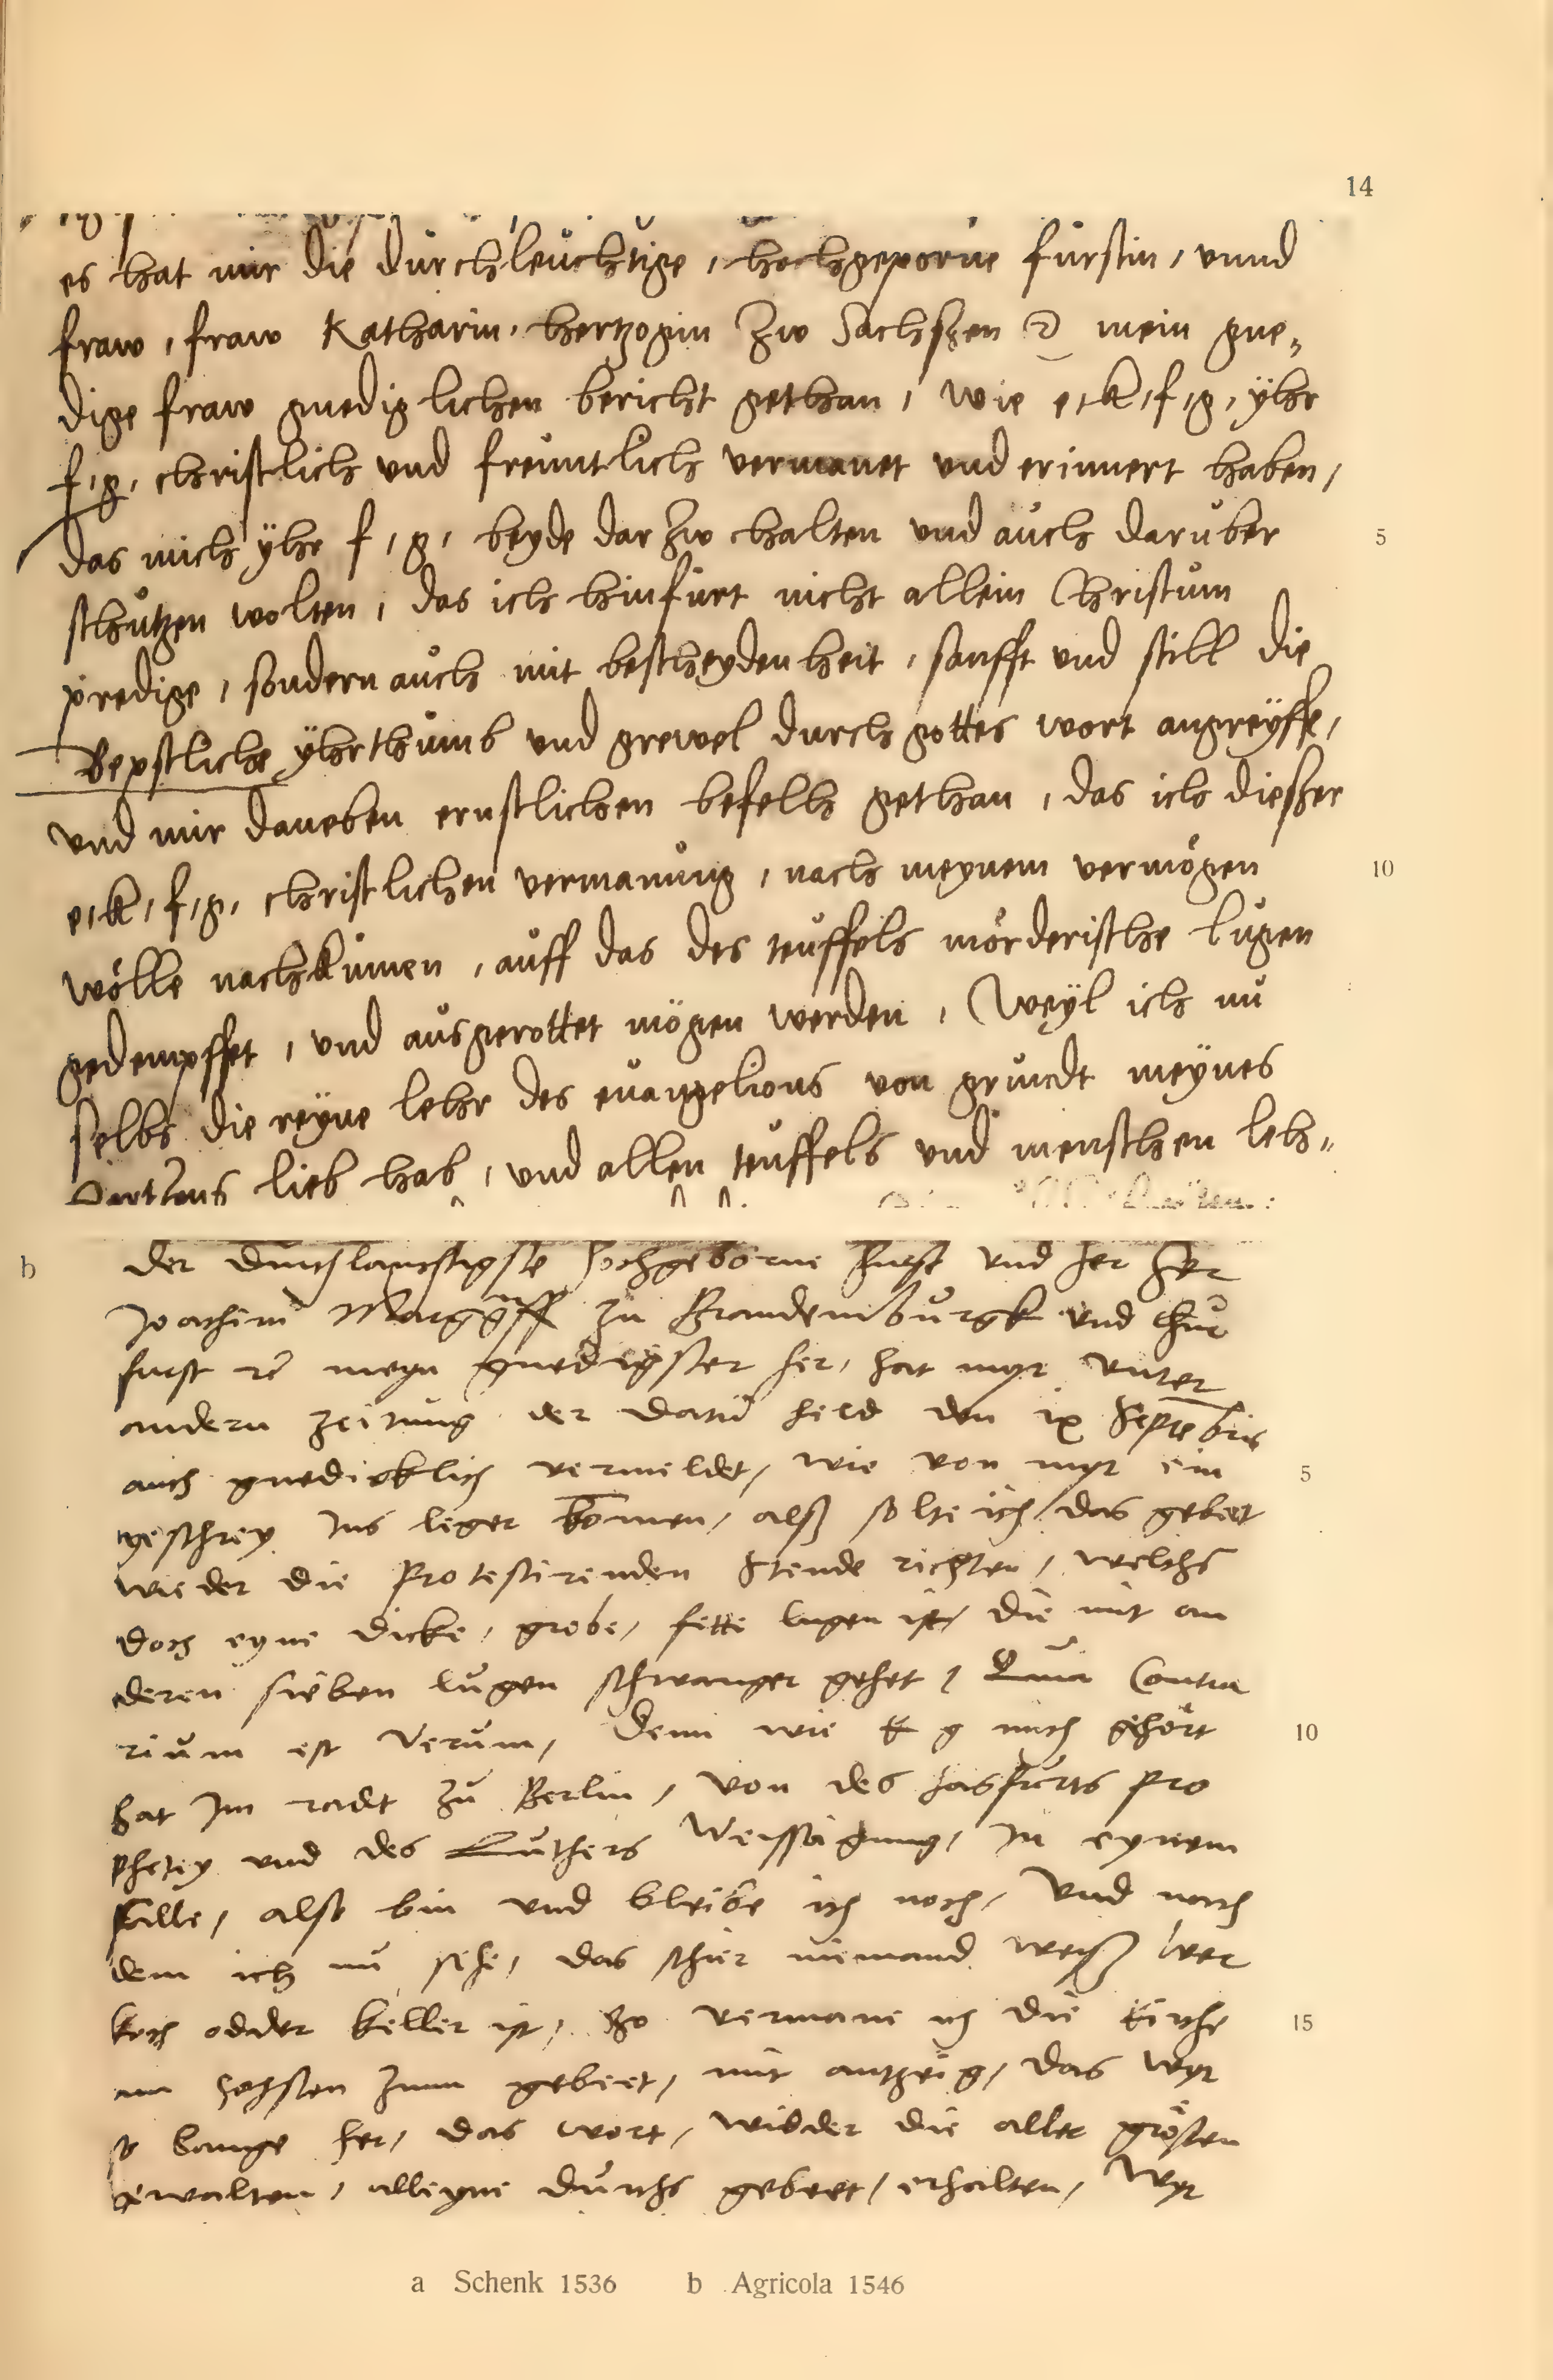 14
es hat mir die durchleuchtige, hochgeporne furstin, vnnd
fraw, fraw Katharin, hertzogin zw Sachsszen ꝛc mein gne„
dige fraw gnediglichen bericht gethan, wie e,k,f,g, ÿhr
f,g, christlich vnd freuntlich vermanet vnd erinnert haben,
das mich ÿhr f,g, beyde darzw halten vnd auch daruber
5
schutzen wolten, das ich hinfurt nicht allein Christum
predige, sondern auch mit bescheydenheit, sanfft vnd still die
Bepstliche ÿhrthumb vnd grewel durch gottes wort angreÿffe,
vnd mir daneben ernstlichen befelh gethan, das ich dießer
e,k,f,g, christlichen vermanung, nach meynem vermögen
10
wölle nachkumen, auff das des teuffels mörderische lugen
gedempffet, vnd ausgerottet mögen werden, Weÿl ich nu
selbs die reÿne lehr des euangelions von grundt meÿnes
hertzens lieb hab, vnd allen teuffels vnd menschen leh„
b
der Durchlauchtigste hochgeborne Furst vnd her Her
Joachim Marggraff zu Brandemburgk vnd Chur
furst ꝛc meyn gnedigster her, hat myr vnter
andern zeitung der datu held den ix Septebris
auch gnedicklich vermeldet, wie von myr ein
5
geschrey Ins leger komen, alß solte ich das gebeet
wieder die Protestirenden Stende richten, welchs
doch eyne dicke, grobe, fette lugen ist, die mit an
deren sieben lugen schwanger gehet, Quia Contra
rium est Verum, Denn wie E g mich gehört
10
hat Im radt zu Berlin, von des hasfurts Pro
phetey vnd des Luthers Weissagung, In eynem
falle, also bin vnd bleibe ich noch, Vnd nach
dem ich nu sehe, das schier niemand weiß wer
koch odder keller ist, So vermane ich die kirche
15
am hochsten zum gebeet, mit antzeig, das wyr
so lange her, das wort, widder die aller grösten
gewalten, alleyne durchs gebeet, erhalten, Wyr
a Schenk 1536 b Agricola 1546